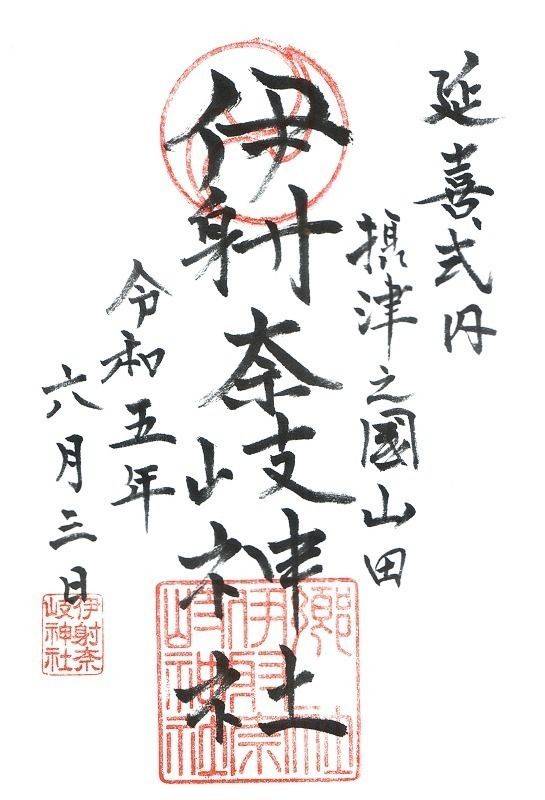 延喜式内
摂津之國山田
伊射奈岐神社
令和五年
六月三日
郷社
伊射奈
岐神社
伊射奈
岐神社